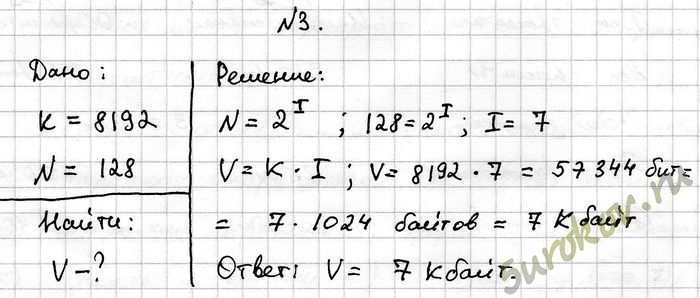 N3.
Дано:
K = 8192
N = 128
Найти:
V-?
Решение:
N = 2^I ; 128 = 2^I ; I = 7
V = K · I ; V = 8192 · 7 = 57344 бит =
= 7 · 1024 байтов = 7 Кбайт
Ответ: V = 7 Кбайт.
5urokov.ru